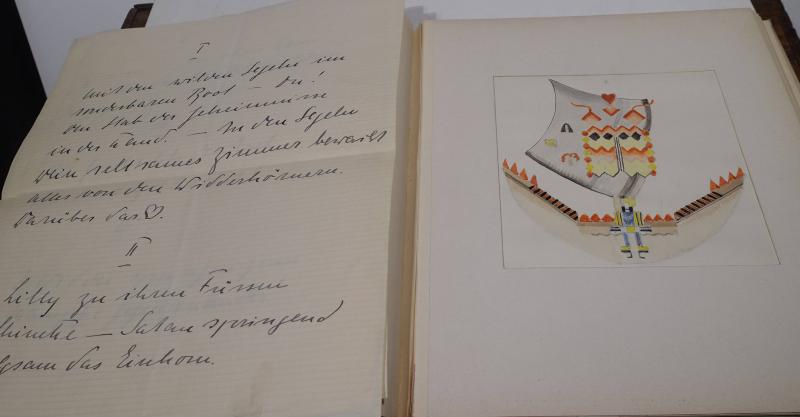 I
mit den wilden Segeln im
sonderbaren Boot – Du!
den Stab der Geheimnisse
in der Hand. – In den Segeln
Dein seltsames Zimmer bewacht
alles von den Widderhörnern.
Darüber das ♡.
II
Lilly zu ihren Füssen
– Satan springend
das Einhorn.